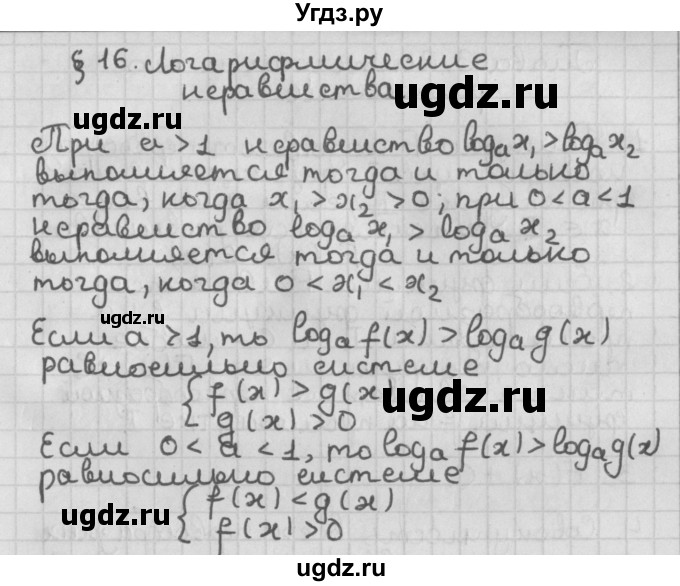 Угдз.ру
§ 16. Логарифмические
неравенства
ugdz.ru
ugdz.ru
При a > 1 неравенство logₐx₁ > logₐx₂
выполняется тогда и только
тогда, когда x₁ > x₂ > 0; при 0 < a < 1
неравенство logₐ x₁ > logₐ x₂
выполняется тогда и только
тогда, когда 0 < x₁ < x₂
ugdz.ru
Если a > 1, то logₐ f(x) > logₐ g(x)
равносильно системе
{ f(x) > g(x)
g(x) > 0
ugdz.ru
Если 0 < a < 1, то logₐ f(x) > logₐ g(x)
равносильно системе
{ f(x) < g(x)
f(x) > 0
ugdz.ru
ugdz.ru